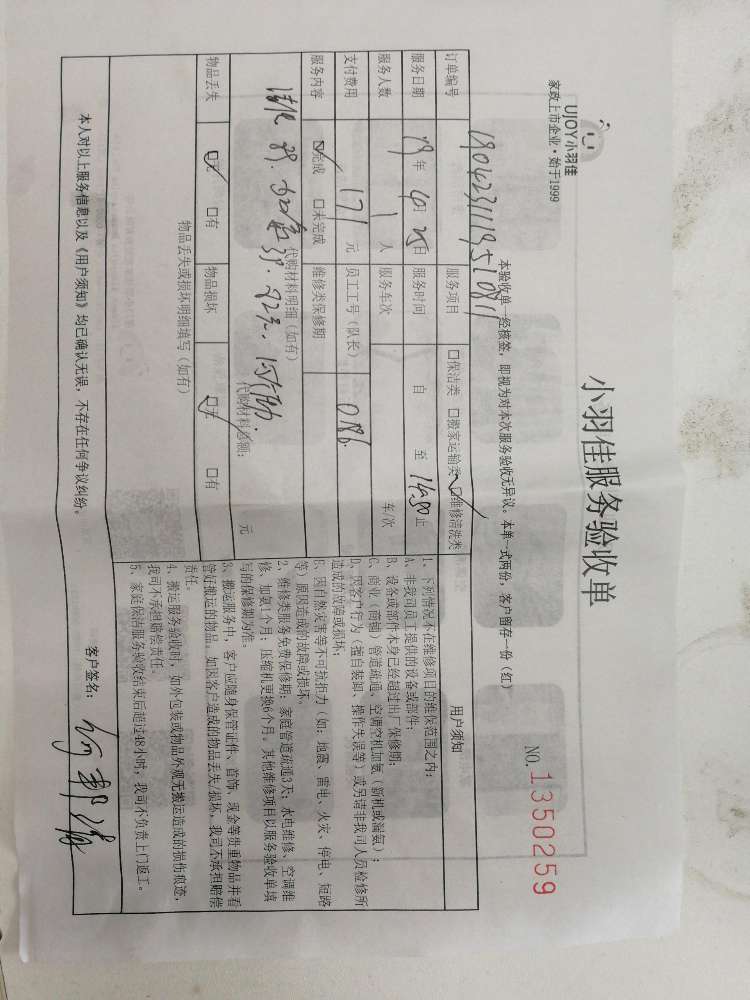 UJOY小羽佳
家政上市企业·始于1999
小羽佳服务验收单
NO. 1350259
本验收单一经核签，即视为对本次服务验收无异议。本单一式两份，客户留存一份（红）
订单编号 服务项目 □保洁类 □搬家运输类 ☑维修清洗类
服务日期 19年4月25日 服务时间 自 至14:30止
服务人数 1人 服务车次 车/次
支付费用 171元 员工工号（队长）
服务内容 ☑完成 □未完成 维修类保修期
代购材料明细（如有）
代购材料总额： 元
物品丢失 ☑无 □有 物品损坏 ☑无 □有
物品丢失或损坏明细填写（如有）
用户须知
1、下列情况不在维修项目的维保范围之内：
A、非我司员工提供的设备或部件；
B、设备或部件本身已经超过出厂保修期；
C、商业（商铺）管道疏通、空调空机加氨（新机或漏氨）；
D、因客户行为（擅自装卸、操作失误等）或另请非我司人员检修所
造成的故障或损坏；
E、因自然灾害等不可抗拒力（如：地震、雷电、火灾、停电、短路
等）原因造成的故障或损坏。
2、维修类服务免费保修期：家庭管道疏通3天；水电维修、空调维
修、加氨1个月；压缩机更换6个月。其他维修项目以服务验收单填
写的保修期为准。
3、搬运服务中，客户应随身保管证件、首饰、现金等贵重物品并看
管好搬运的物品。如因客户造成的物品丢失/损坏，我司不承担赔偿
责任。
4、搬运服务验收时，如外包装或物品外观无搬运造成的损伤痕迹，
我司不承担赔偿责任。
5、家庭保洁服务验收结束后超过48小时，我司不负责上门返工。
本人对以上服务信息以及《用户须知》均已确认无误，不存在任何争议纠纷。
客户签名：